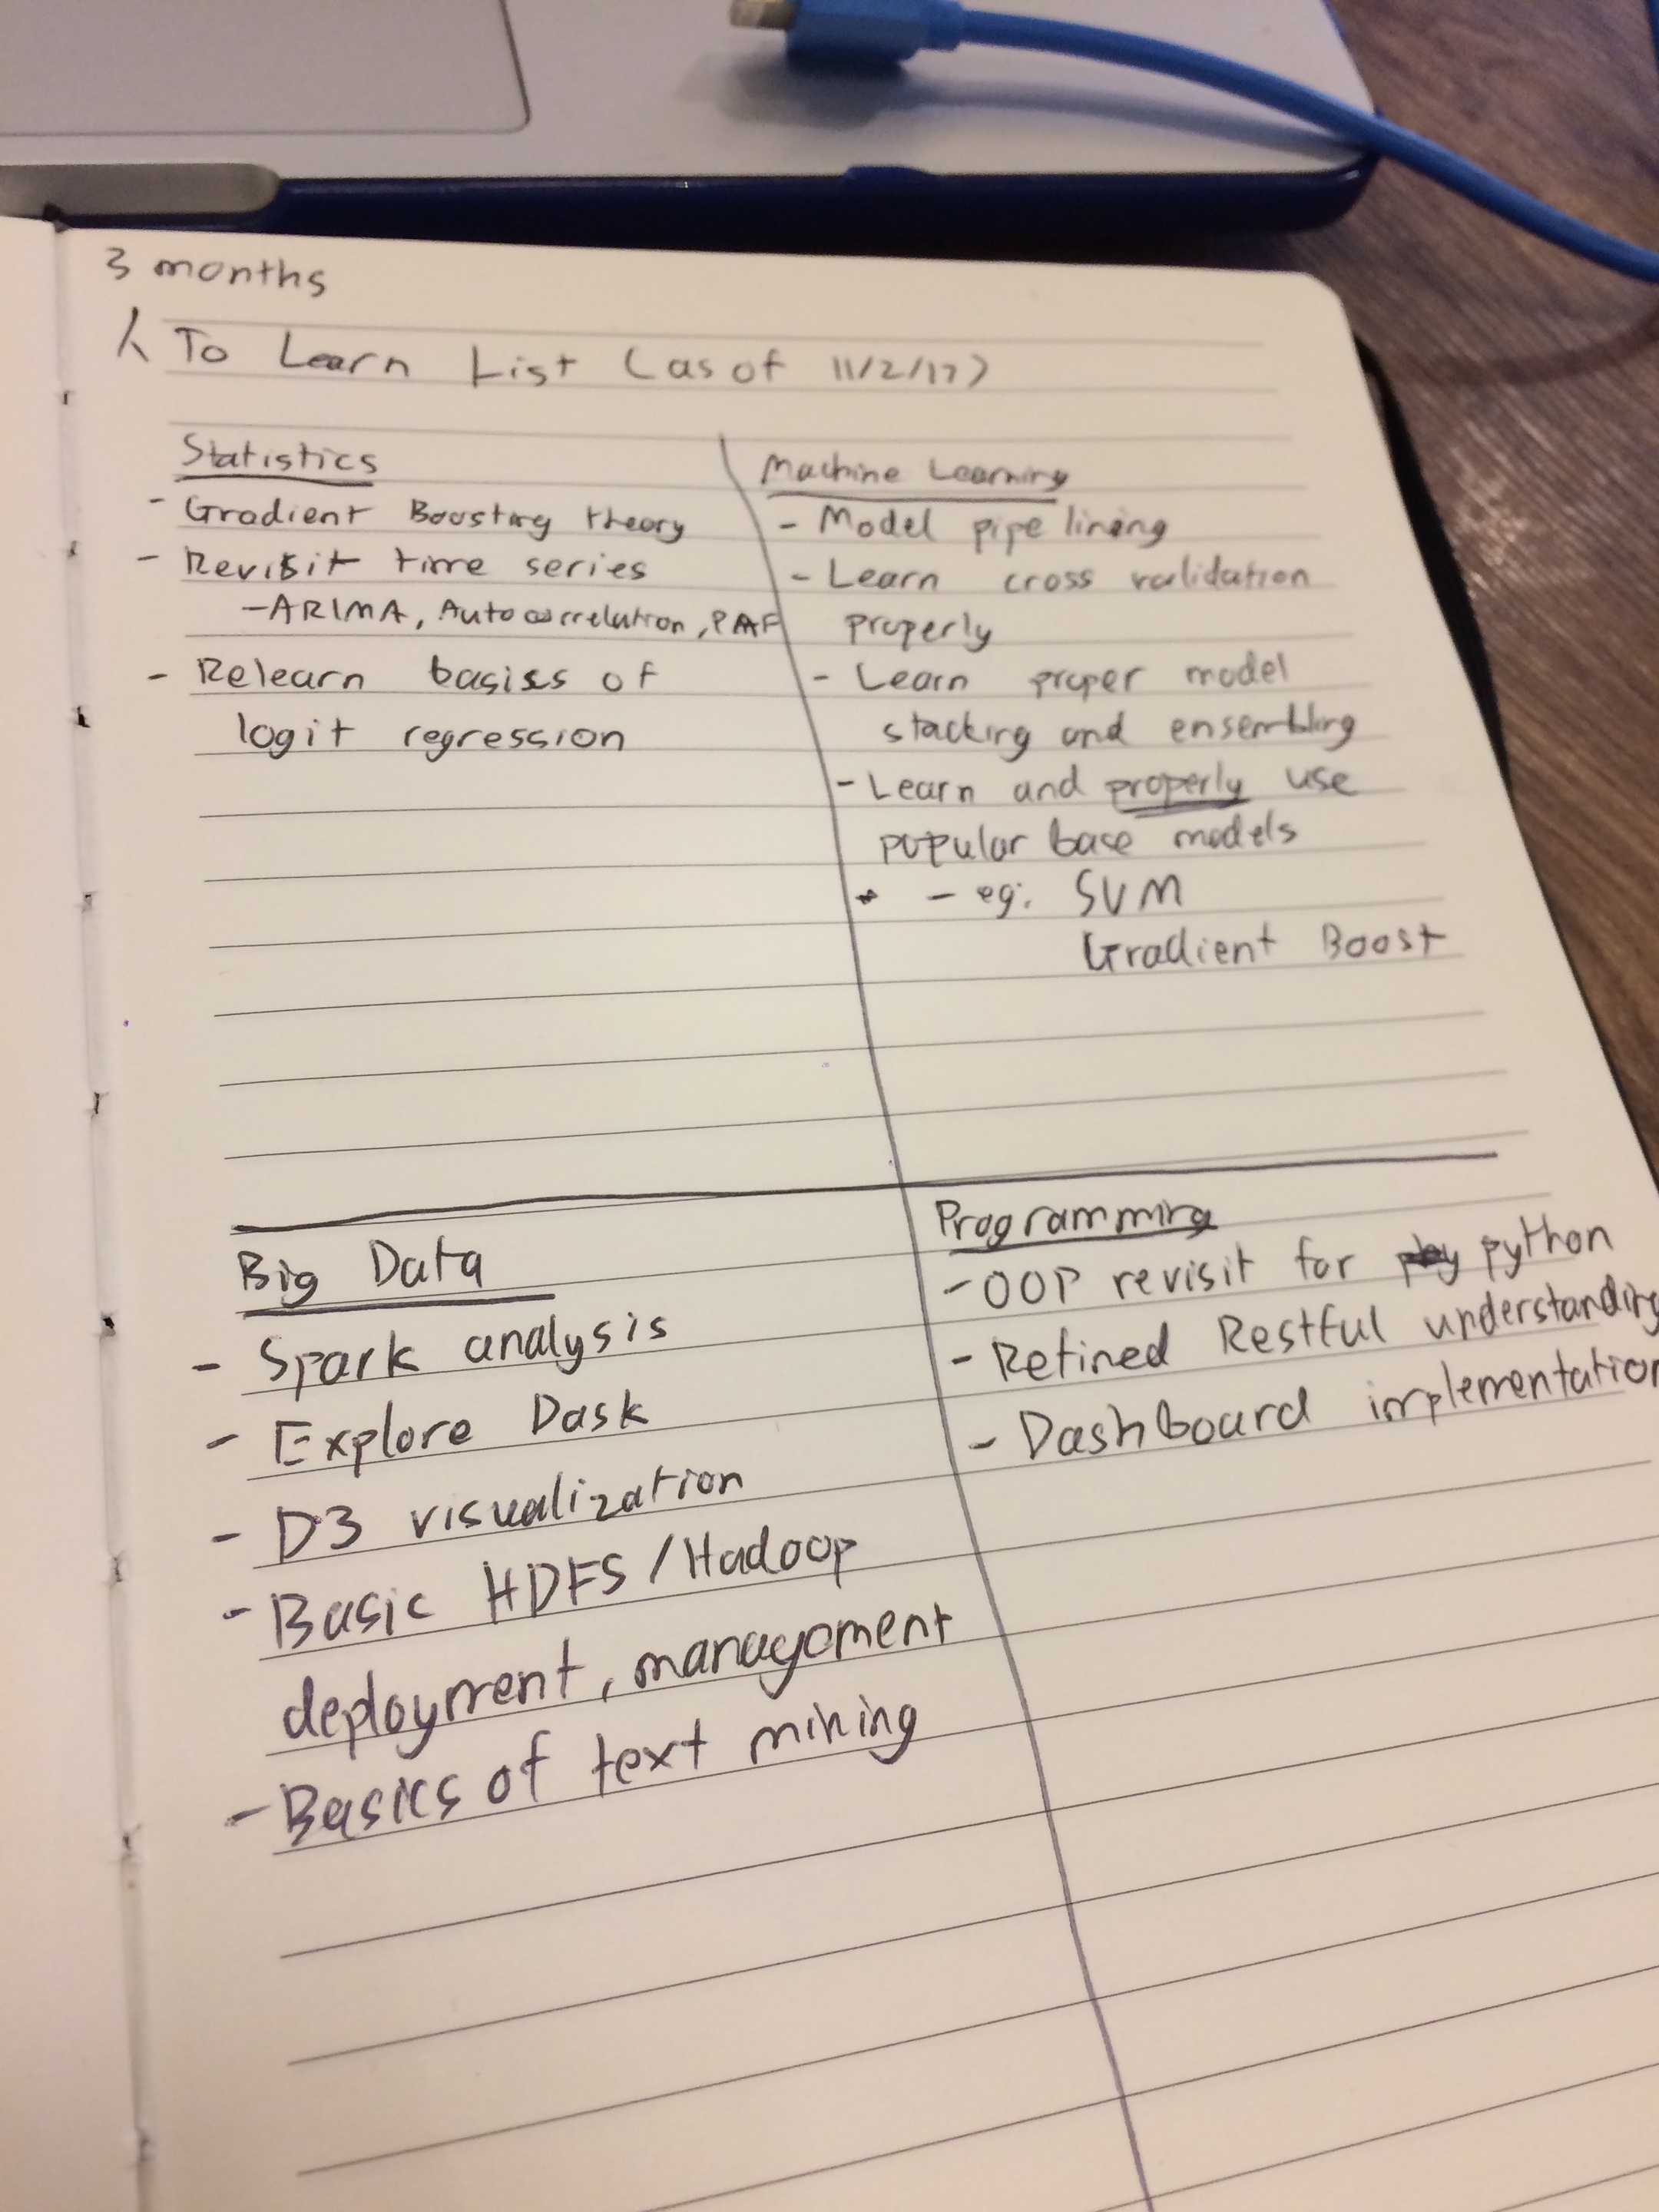 3 months
To Learn List (as of 11/2/17)
Statistics
- Gradient Boosting theory
- Revisit time series
- ARIMA, Autocorrelation, PAF
- Relearn basiss of
logit regression
Machine Learning
- Model pipe lining
- Learn cross validation
properly
- Learn proper model
stacking and ensembling
- Learn and properly use
popular base models
- eg: SVM
Gradient Boost
Big Data
- Spark analysis
- Explore Dask
- D3 visualization
- Basic HDFS / Hadoop
deployment, management
- Basics of text mining
Programming
- OOP revisit for python
- Refined Restful understanding
- Dashboard implementation